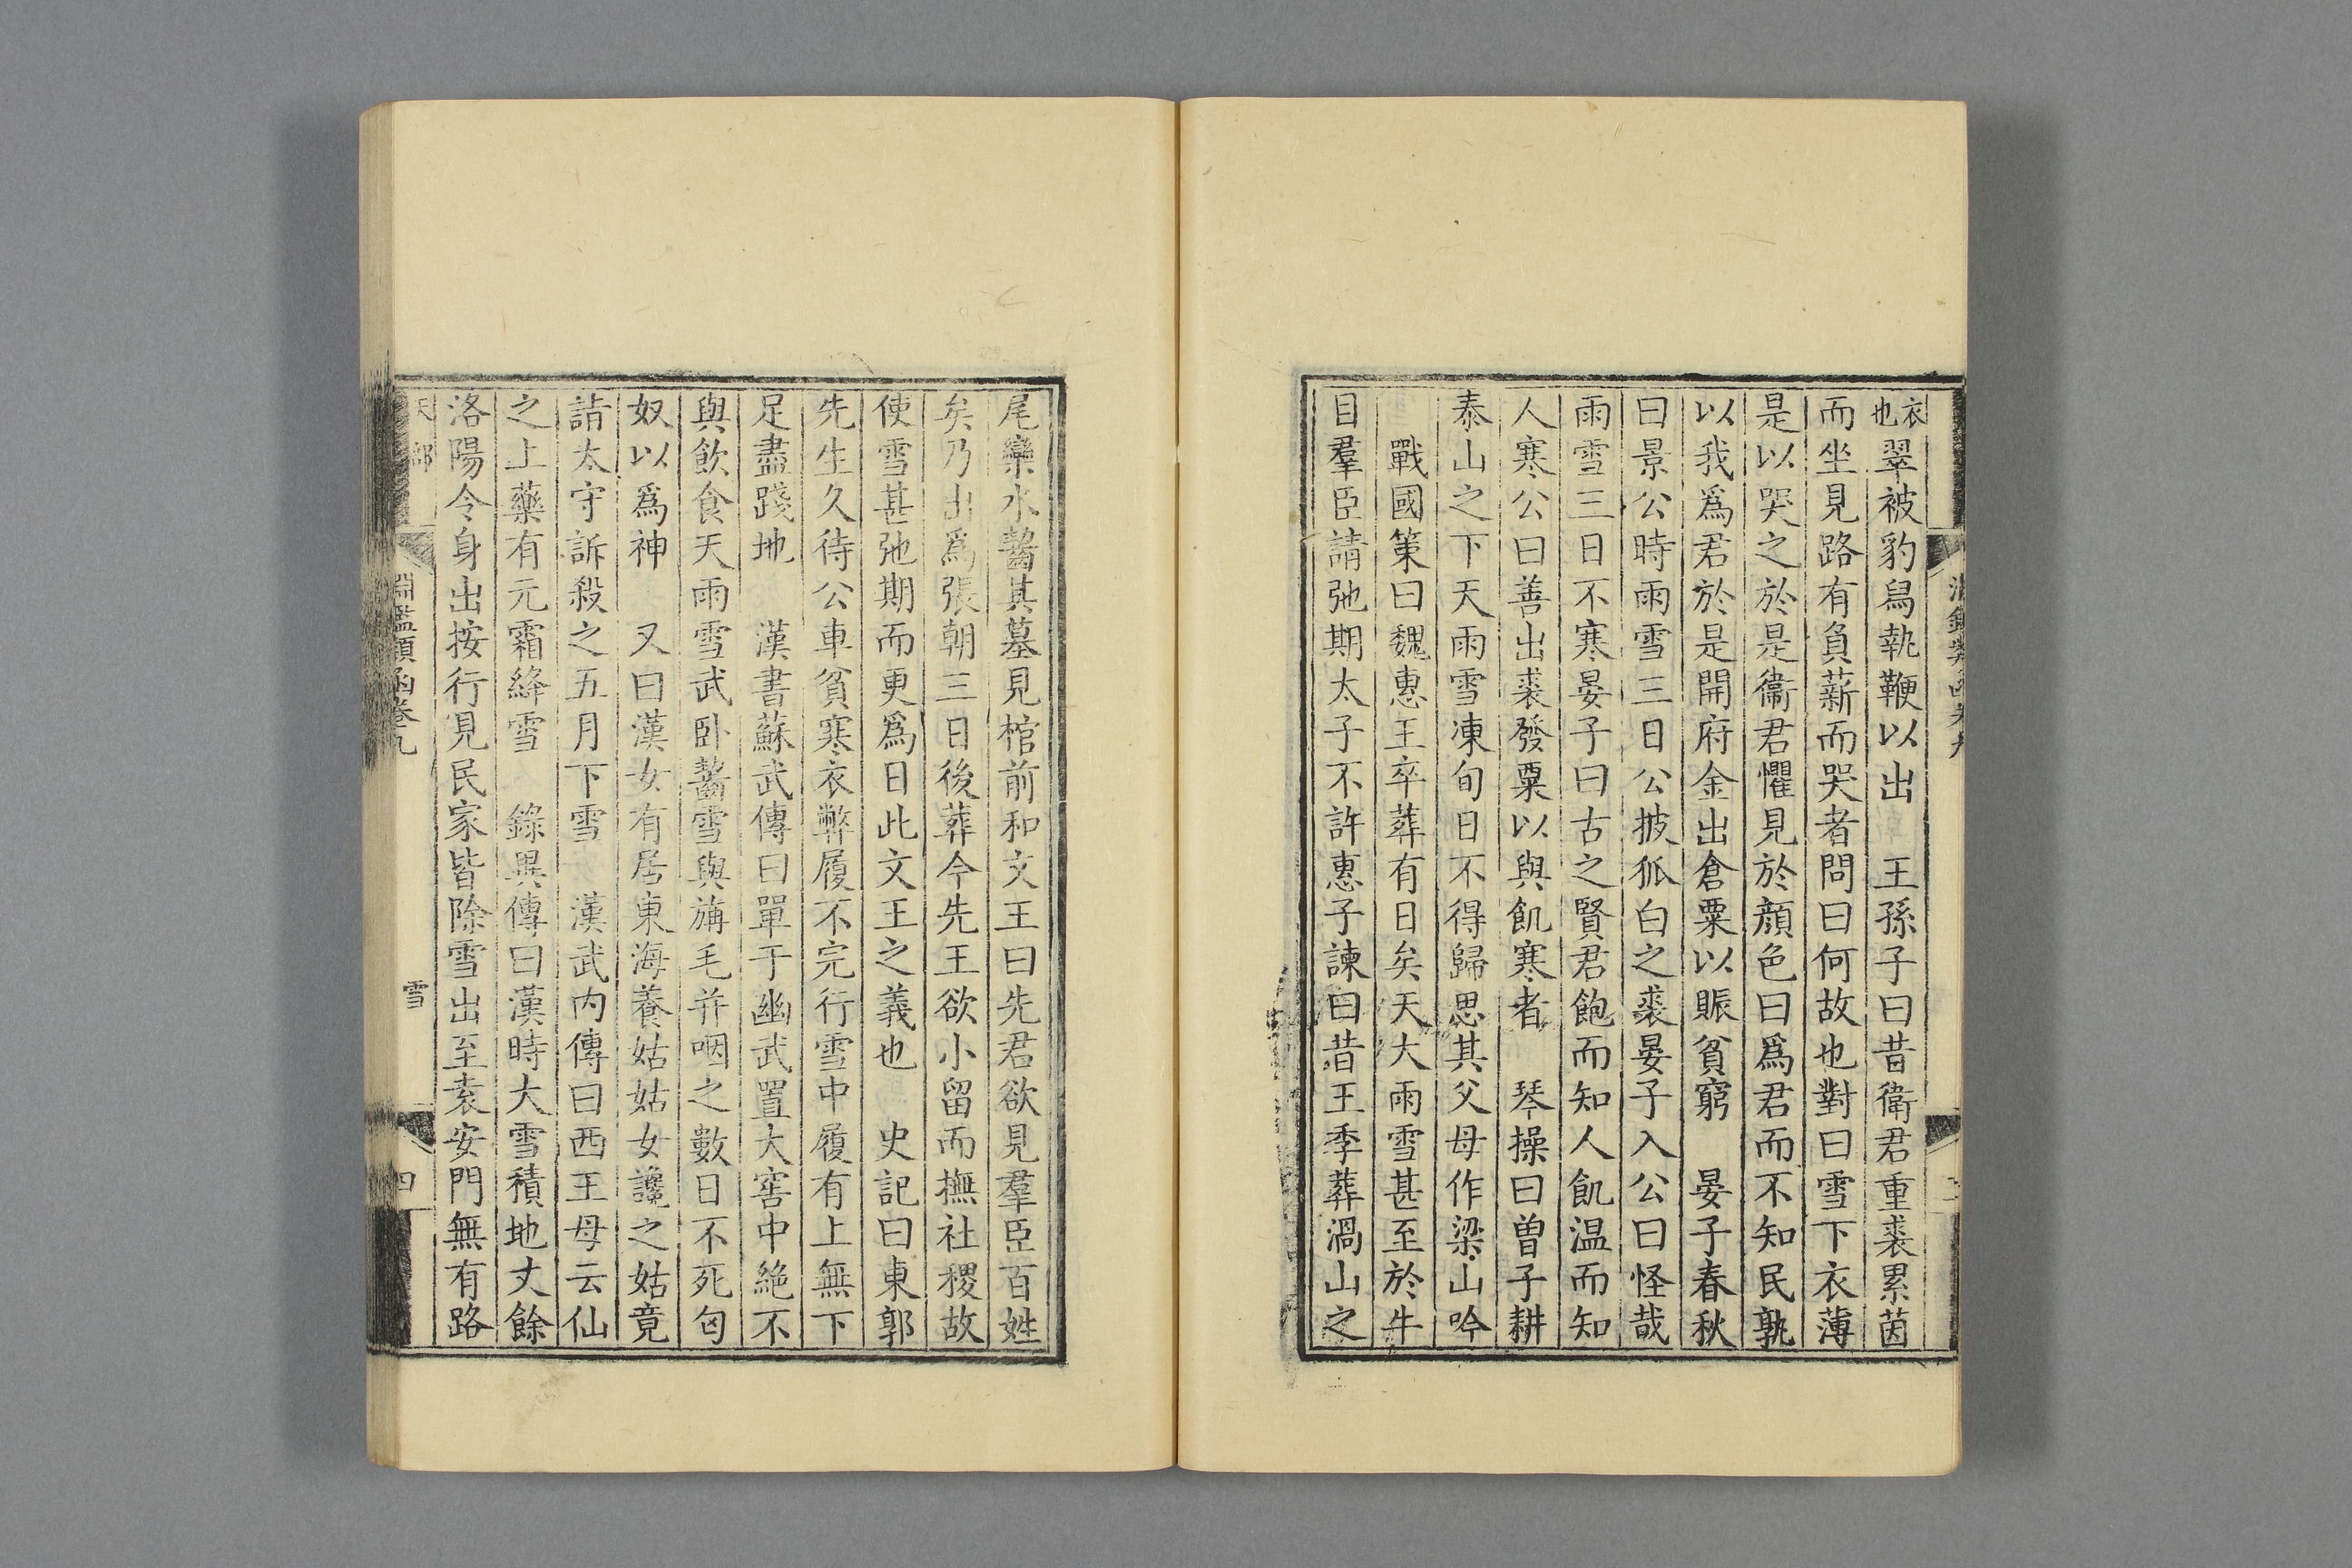 衣也翠被豹舄執鞭以出　王孫子曰昔衛君重裘累茵
而坐見路有負薪而哭者問曰何故也對曰雪下衣薄
是以哭之於是衞君懼見於顔色曰爲君而不知民孰
以我爲君於是開府金出倉粟以賑貧窮　晏子春秋
曰景公時雨雪三日公披狐白之裘晏子入公曰怪哉
雨雪三日不寒晏子曰古之賢君飽而知人飢温而知
人寒公曰善出裘發粟以與飢寒者　琴操曰曽子耕
泰山之下天雨雪凍旬日不得歸思其父母作梁山吟
戰國策曰魏惠王卒葬有日矣天大雨雪甚至於牛
目羣臣請弛期太子不許惠子諫曰昔王季葬渦山之
尾欒水齧其墓見棺前和文王曰先君欲見羣臣百姓
矣乃出爲張朝三日後葬今先王欲小留而撫社稷故
使雪甚弛期而更爲日此文王之義也　史記曰東郭
先生久待公車貧寒衣弊履不完行雪中履有上無下
足盡踐地　漢書蘇武傳曰單于幽武置大窖中絶不
與飲食天雨雪武卧齧雪與旃毛并咽之數日不死匈
奴以爲神　又曰漢女有居東海養姑姑女讒之姑竟
詣太守訴殺之五月下雪　漢武内傳曰西王母云仙
之上藥有元霜絳雪　錄異傳曰漢時大雪積地丈餘
洛陽令身出按行見民家皆除雪出至袁安門無有路
天部　淵鑑類函卷九　雪　四